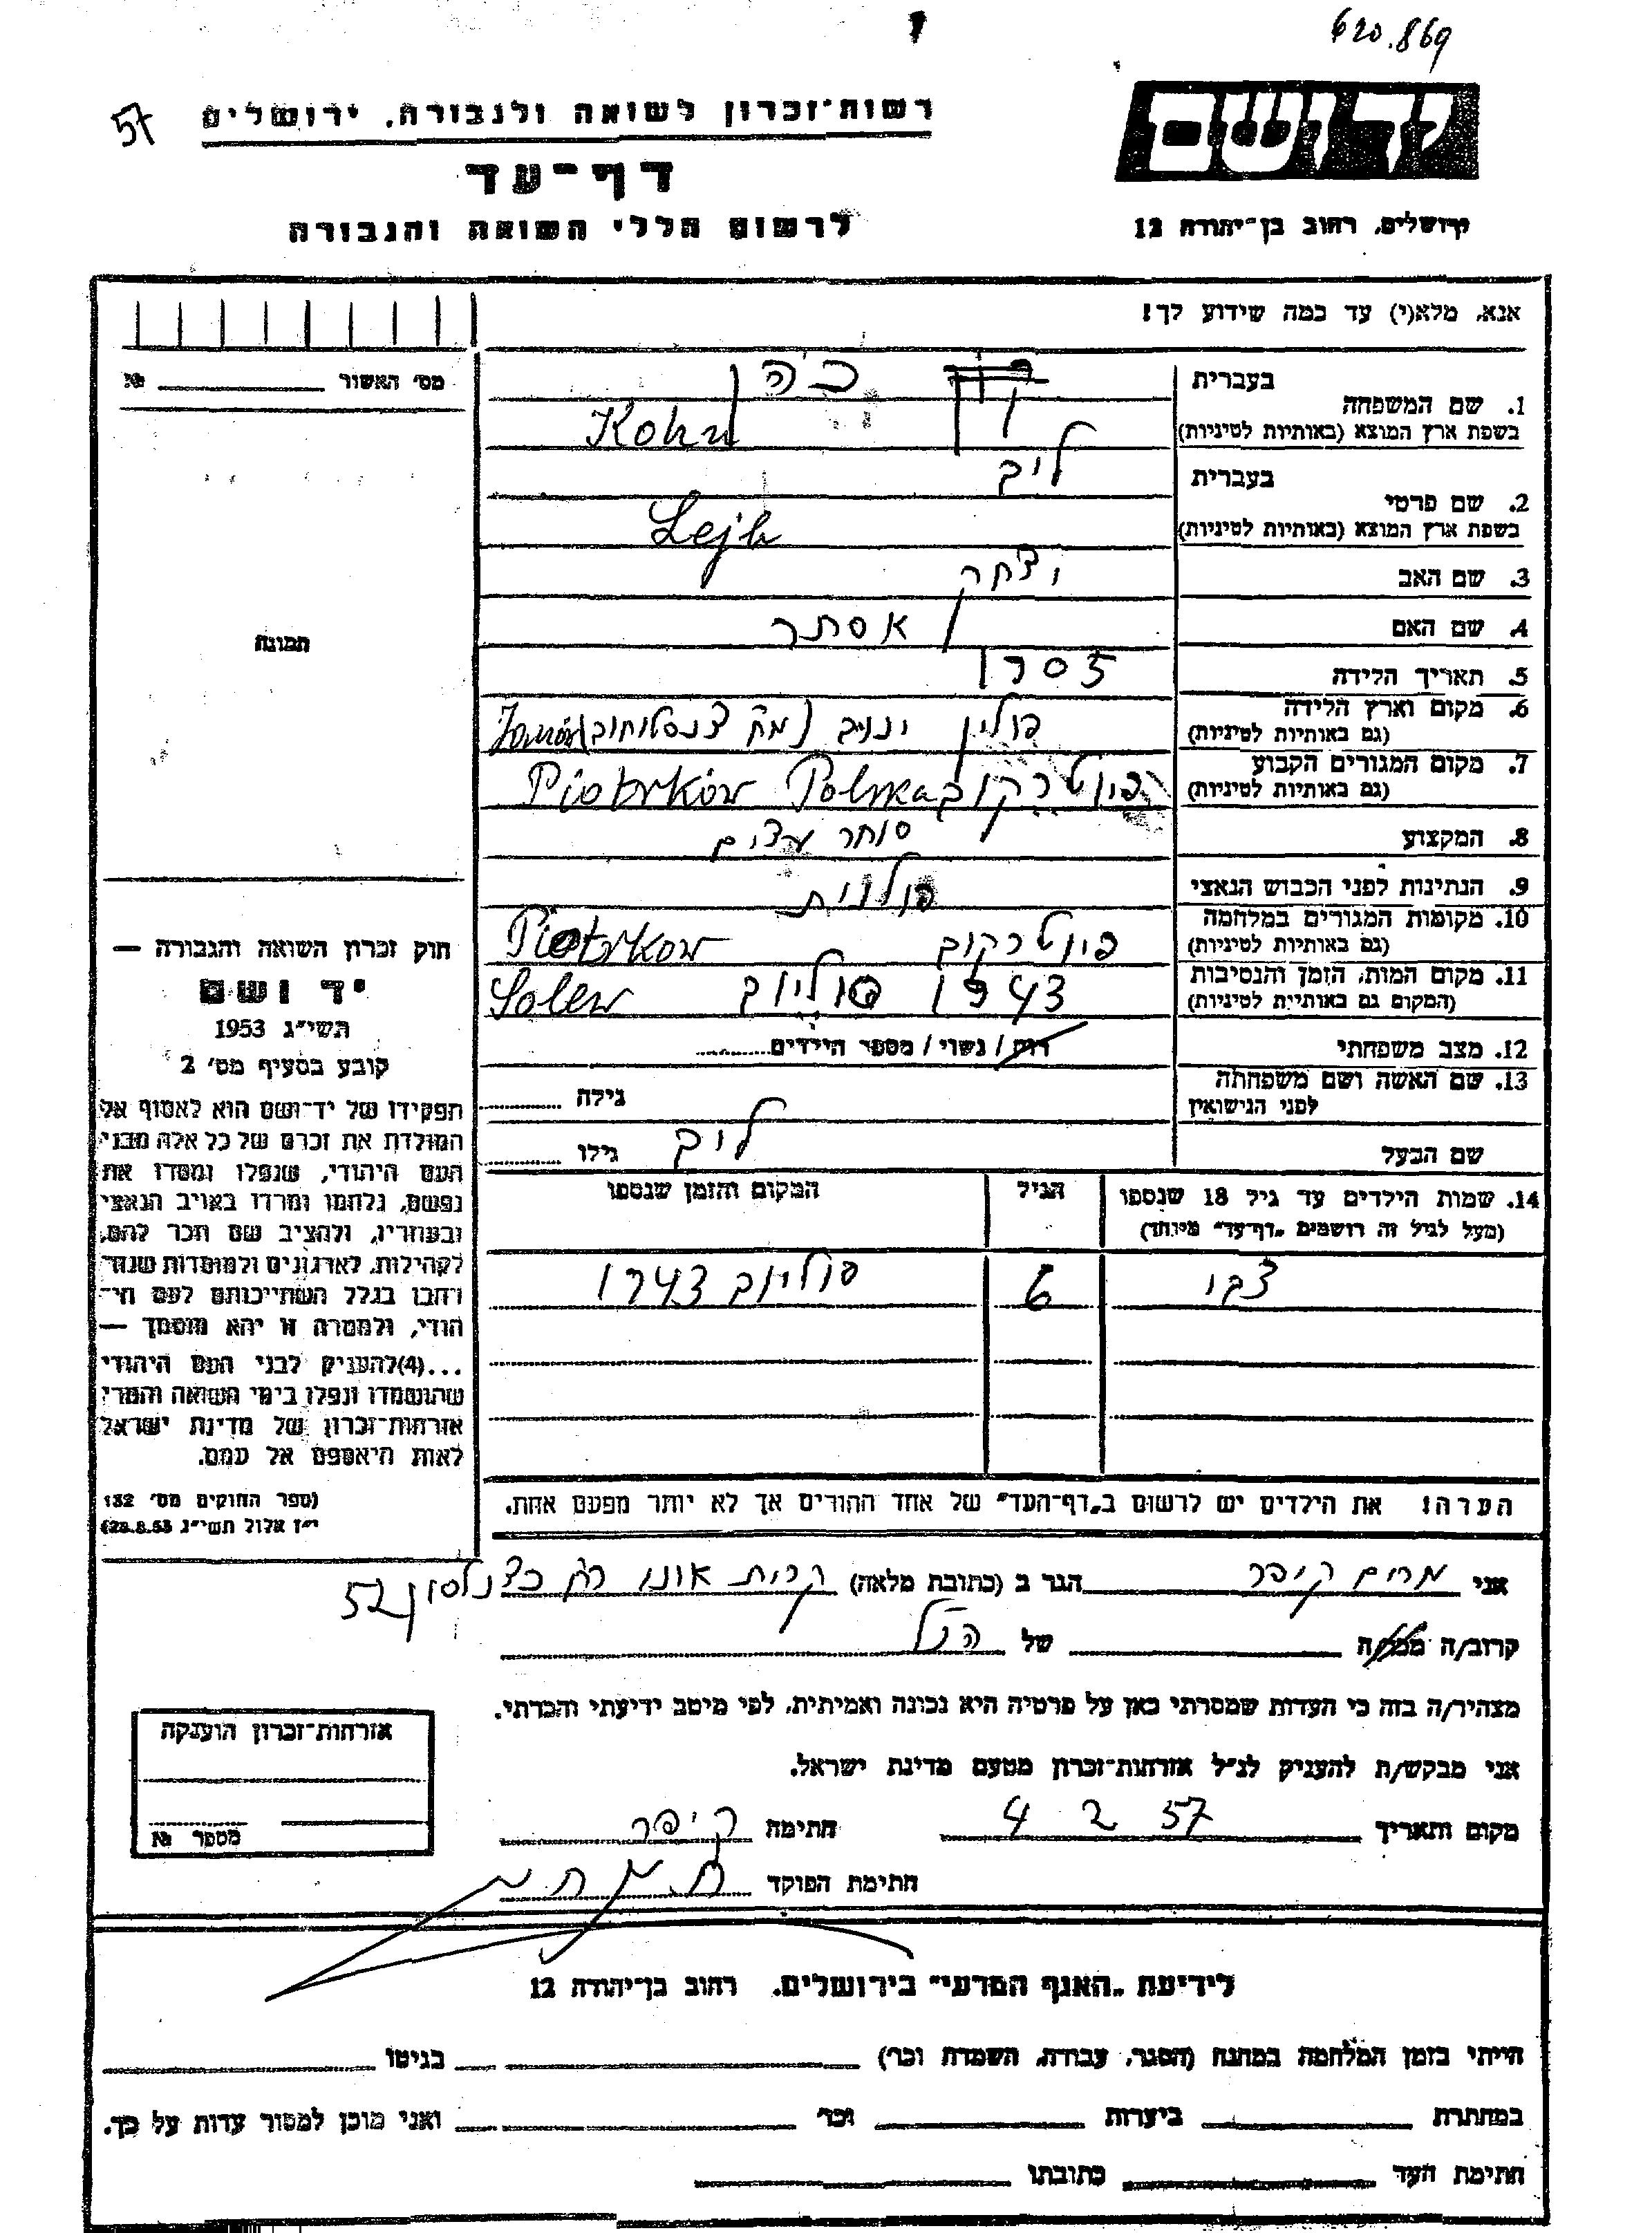 620.869
57
רשות־זכרון לשואה ולגבורה, ירושלים
דף־עד
לרשום חללי השואה והגבורה
יד ושם
ירושלים, רחוב בן־יהודה 12
אנא, מלא(י) עד כמה שידוע לך!
מס׳ האשור № 
1. שם המשפחה
בעברית
כהן
בשפת ארץ המוצא (באותיות לטיניות)
Kohn
2. שם פרטי
בעברית
ליב
בשפת ארץ המוצא (באותיות לטיניות)
Lejb
3. שם האב יצחק
4. שם האם אסתר
5. תאריך הלידה 1905
6. מקום וארץ הלידה
(גם באותיות לטיניות)
פולין ינוב
Janów
7. מקום המגורים הקבוע
(גם באותיות לטיניות)
פיוטרקוב Piotrków Polska
8. המקצוע סוחר עצים
9. הנתינות לפני הכבוש הנאצי פולנית
10. מקומות המגורים במלחמה
(גם באותיות לטיניות)
פיוטרקוב Piotrkow
11. מקום המות, הזמן והנסיבות
(המקום גם באותיות לטיניות)
1943
12. מצב משפחתי רווק / נשוי / מספר הילדים
13. שם האשה ושם משפחתה
לפני הנישואין
גילה
שם הבעל ליב גילו
14. שמות הילדים עד גיל 18 שנספו
(מעל לגיל זה רושמים „דף־עד״ מיוחד)
הגיל
המקום והזמן שנספו
צבי 6 1943
תמונה
חוק זכרון השואה והגבורה —
יד ושם
תשי״ג 1953
קובע בסעיף מס׳ 2
תפקידו של יד־ושם הוא לאסוף אל
המולדת את זכרם של כל אלה מבני
העם היהודי, שנפלו ומסרו את
נפשם, נלחמו ומרדו באויב הנאצי
ובעוזריו, ולהציב שם וזכר להם,
לקהילות, לארגונים ולמוסדות שנח־
רבו בגלל השתייכותם לעם הי־
הודי, ולמטרה זו יהא מוסמך —
...(4)להעניק לבני העם היהודי
שהושמדו ונפלו בימי השואה והמרי
אזרחות־זכרון של מדינת ישראל
לאות היאספם אל עמם.
(ספר החוקים מס׳ 132
י״ז אלול תשי״ג 28.8.53)
הערה! את הילדים יש לרשום ב„דף־העד״ של אחד ההורים אך לא יותר מפעם אחת.
אני מרים קיפר הגר ב (כתובת מלאה) קרית אונו רח כצנלסון 52
קרוב/ה מכר/ה של הנ״ל
מצהיר/ה בזה כי העדות שמסרתי כאן על פרטיה היא נכונה ואמיתית, לפי מיטב ידיעתי והכרתי.
אני מבקש/ת להעניק לנ״ל אזרחות־זכרון מטעם מדינת ישראל.
מקום ותאריך 4 2 57 חתימה קיפר
חתימת הפוקד
אזרחות־זכרון הוענקה
מספר №
לידיעת „האגף המדעי״ בירושלים. רחוב בן־יהודה 12
הייתי בזמן המלחמה במחנה (הסגר, עבודה, השמדה וכר׳) בגיטו
במחתרת ביערות וכר׳ ואני מוכן למסור עדות על כך.
חתימת העד כתובתו